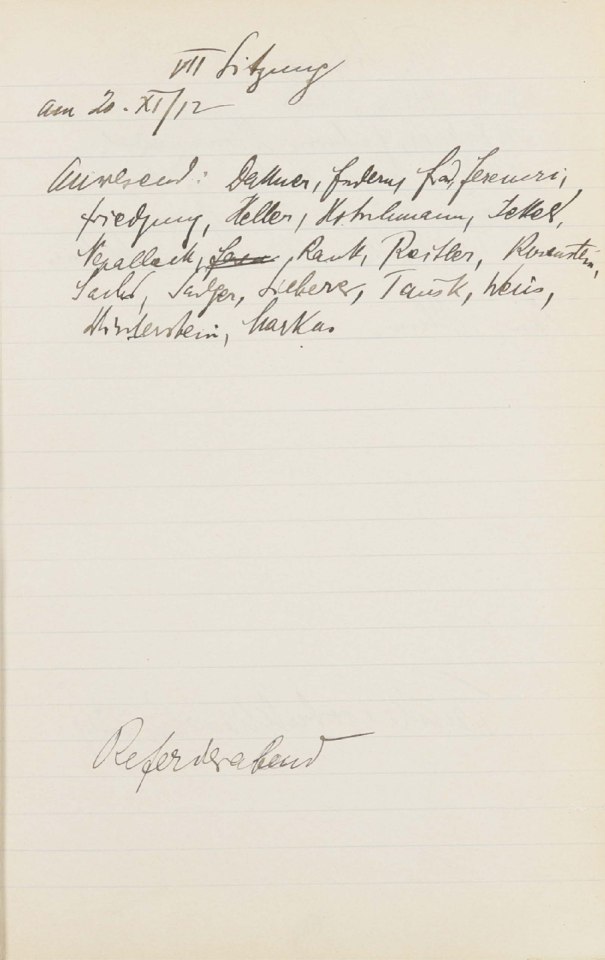 VII Sitzung
am 20. XI/12
Anwesend: Dattner, Federn, Frd, Ferenczi,
Friedjung, Heller, Hitschmann, Jekels,
Nepallek, Rank, Reitler, Rosenstein,
Sachs, Sadger, Silberer, Tausk, Weiss,
Winterstein, Markus
Referierabend